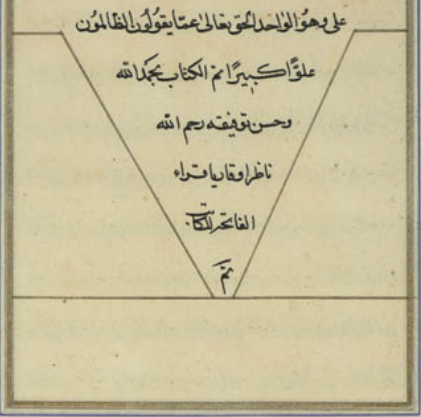 على وهو الواحد الحق تعالى عما يقولون الظالمون
علوًّا كبيرًا تم الكتاب بحمد الله
وحسن توفيقه رحم الله
ناظرا وقاريا قراء
الفاتحه للكاتب
تمّ